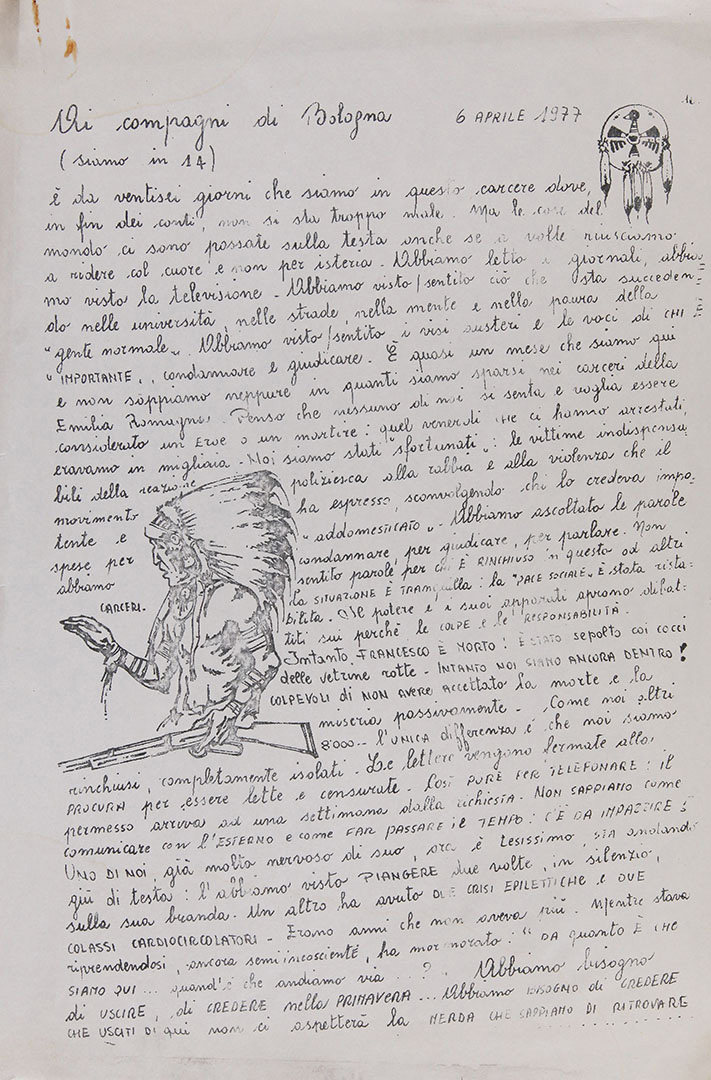 Ai compagni di Bologna 6 APRILE 1977
(siamo in 14)
è da ventisei giorni che siamo in questo carcere dove,
in fin dei conti, non si sta troppo male. Ma le cose del
mondo ci sono passate sulla testa anche se a volte riusciamo
a ridere col cuore e non per isteria. Abbiamo letto i giornali, abbia=
mo visto la televisione. Abbiamo visto/sentito ciò che sta succeden=
do nelle università, nelle strade, nella mente e nella paura della
"gente normale". Abbiamo visto/sentito i visi austeri e le voci di CHI È
"IMPORTANTE", condannare e giudicare. È quasi un mese che siamo qui
e non sappiamo neppure in quanti siamo sparsi nei carceri della
Emilia Romagna. Penso che nessuno di noi si senta e voglia essere
considerato un Eroe o un martire: quel venerdì che ci hanno arrestati,
eravamo in migliaia. Noi siamo stati "sfortunati": le vittime indispensa
bili della reazione poliziesca alla rabbia e alla violenza che il
movimento ha espresso, sconvolgendo chi lo credeva impo=
tente e "addomesticato". Abbiamo ascoltato le parole
spese per condannare, per giudicare, per parlare. Non
abbiamo sentito parole per chi È RINCHIUSO in questo od altri
CARCERI. La SITUAZIONE È TRANQUILLA: la "PACE SOCIALE" È stata rista=
bilita. Il potere e i suoi apparati aprono dibat=
titi sui perchè, le COLPE e le RESPONSABILITÀ.
Intanto, FRANCESCO È MORTO! È STATO sepolto coi cocci
delle vetrine rotte. INTANTO NOI SIAMO ANCORA DENTRO!
COLPEVOLI di NON AVERE ACCETTATO la morte e la
miseria passivamente. Come noi altri
8'000... l'UNICA differenza è che noi siamo
rinchiusi, completamente isolati. Le lettere vengono fermate alla
PROCURA per essere lette e censurate. COSÌ PURE PER TELEFONARE: il
permesso arriva ad una settimana dalla richiesta. NON SAPPIAMO COME
comunicare con l'ESTERNO e come FAR PASSARE il TEMPO: C'È DA IMPAZZIRE!
UNO DI NOI, già molto nervoso di suo, ora è tesissimo, STA andando
giù di testa: l'abbiamo visto PIANGERE due volte, in silenzio,
sulla sua branda. Un altro ha avuto DUE CRISI EPILETTICHE e DUE
COLASSI CARDIOCIRCOLATORI. Erano anni che non aveva più. Mentre stava
riprendendosi, ancora semi incosciente, ha mormorato: "DA quanto È CHE
SIAMO QUI... quand'è che andiamo via...? Abbiamo bisogno
di USCIRE, di CREDERE nella PRIMAVERA... Abbiamo BISOGNO di CREDERE
CHE USCITI DI qui non ci aspetterà la MERDA CHE SAPPIAMO DI RITROVARE